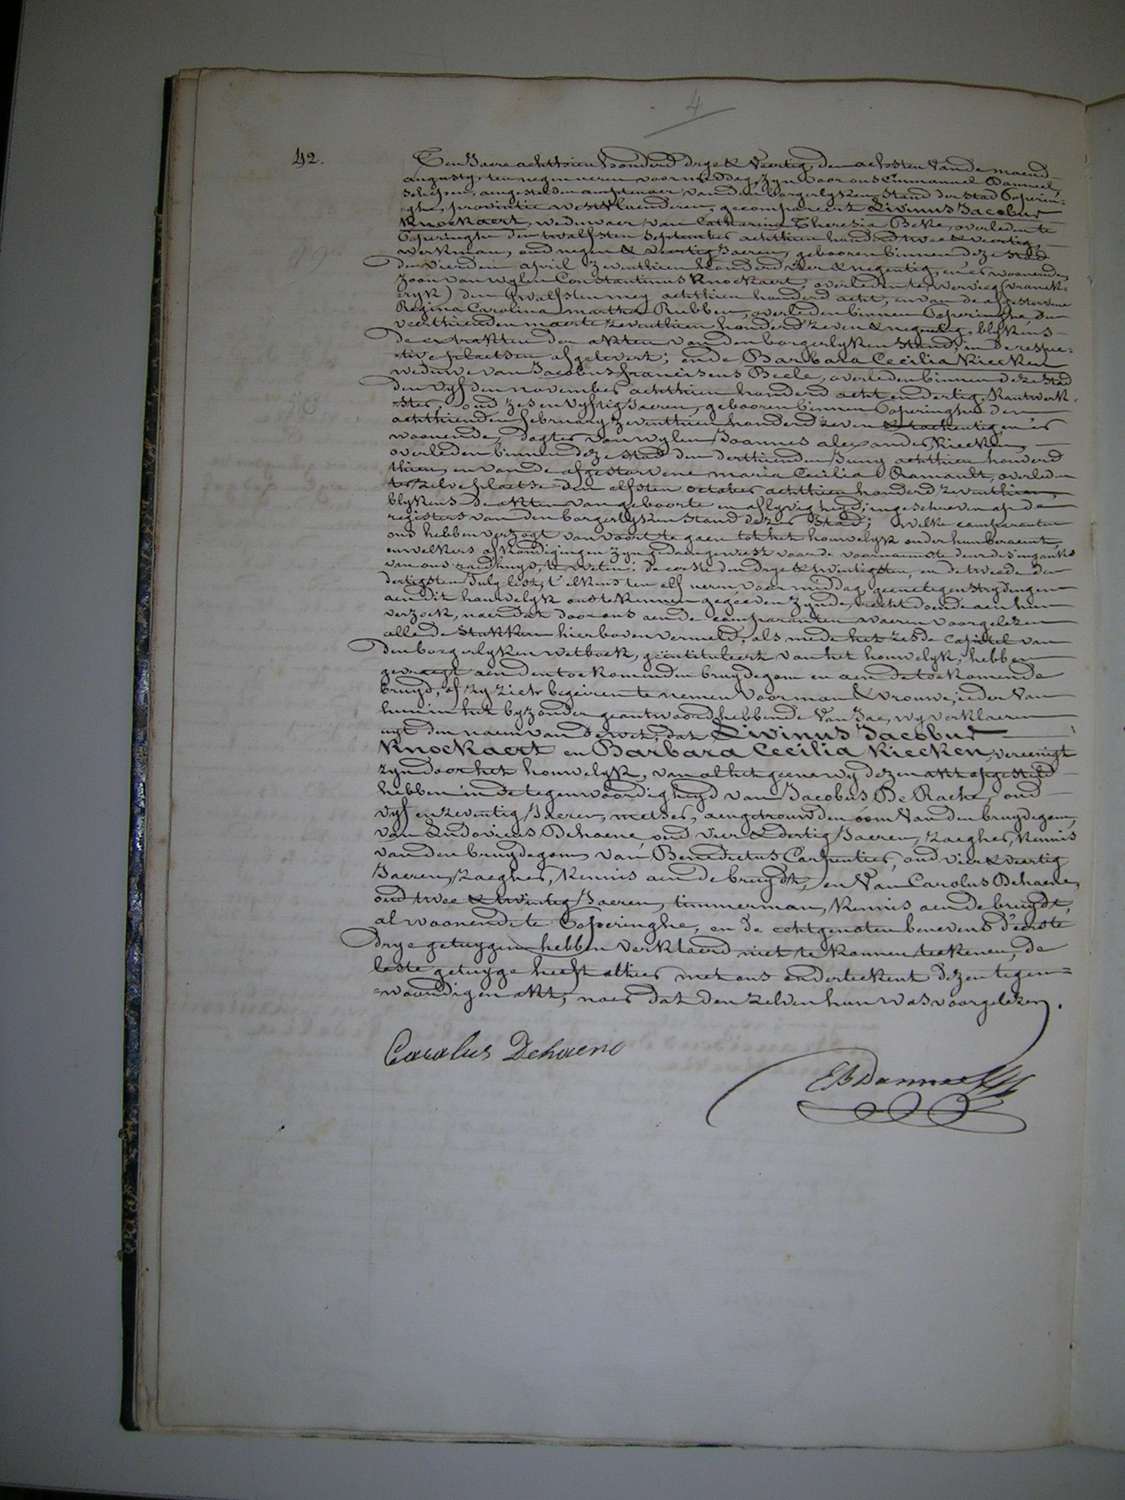 4
42.
Ten Jaere achttien honderd drye & Veertig, den achsten Van de maend
augusty, ten negen uren voormiddag, zyn voor ons Emmanuel Dammeel,
schepen, amptenaer van den borgerlyken Stand der Stad Poperin-
=ghe, provintie Westvlaenderen, gecompareert Livinus Jacobus
Knockaert, weduwaer van Catharina Theresia Beke, overleden te
Poperinghe den twalfsten September achttien honderd twee & veertig,
werkman, oud negen & veertig Jaeren, gebooren binnen deze Stad
den vierden april zeventhien honderd vier & negentig, en er woonende,
zoon van wylen Constantinus Knockaert, overleden te Vervicq (vranck-
=ryk) den twalfsten mey achttien honderd acht, en van de afgestorvene
Regina Carolina martha Rubben, overleden binnen Poperinghe den
veerthienden maerte zeventhien honderd zeven & negentig, blykens
de extrakten der akten van den borgerlyken Stand, in de respec-
=tive plaetsen afgelevert; en de Barbara Cecilia Kiecken
weduwe van Jacobus franciscus Beele, overleden binnen deze Stad
den vyfden november achtthien honderd acht en dertig, Kantwerk-
=ster, oud zes en vyftig Jaeren, gebooren binnen Poperinghe den
achtthienden february zeventhien honderd zeven & tachentig en er
woonende, dogter van wylen Joannes alexander Kiecken,
overleden binnen deze Stad den derthienden Juny achtthien honderd
thien, en van de afgestorvene maria Cecilia Ramault, overleden
ter zelve plaetse den elfsten october achtthien honderd zeventhien,
blykens de akten van geboorte en aflyvigheyd, ingeschreven op de
registers van den borgerlyken Stand dezer Stad; Welke comparanten
ons hebben verzogt van voort te gaen tot het houwelyk onder hun beraemt,
en welkers afkondigingen zyn gedaen geweest voor de voornaemste deure des ingangs
van ons raedhuys, te weten: de eerste den drye & twintigsten, en de tweede den
dertigsten July lest, t'elkens ten elf uren voormiddag, geene tegenstrydingen
aen dit houwelyk ons te kennen gegeeven zynde, recht doende aen hun
verzoek, naer dat door ons aen de comparanten waeren voorgelezen
alle de Stukken hier boven vermeld, als mede het zesde Capittel van
den borgerlyken wetboek, geintituleert van het houwelyk, hebben
gevraegt aen den toekomenden bruydegom en aen de toekomende
bruyd, of zy zich begeiren te nemen voor man & vrouwe, ieder Van
hun in het byzonder geantwoord hebbende Van Jae, wy verklaeren
uyt den naem van de wet, dat Livinus Jacobus
Knockaert en Barbara Cecilia Kiecken, vereenigt
zyn door het houwelyk, van al het geene wy dezen akt opgesteld
hebben in de tegenwoordigheyd van Jacobus De Rache, oud
vyf en zeventig Jaeren, metser, aengetrouwden oom Van den bruydegom,
van Ludovicus Dehaene oud vier & dertig Jaeren, zaegher, Kennis
van den bruydegom, van Benedictus Carpentier, oud vier & veertig
Jaeren, zaegher, Kennis aen de bruydt, en Van Carolus Dehaene,
oud twee & twintig Jaeren, timmerman, Kennis aen de bruydt,
al woonende te Poperinghe, en de echtgenoten benevens d'eerste
drye getuygen hebben verklaerd niet te konnen teekenen, de
leste getuyge heeft alhier met ons onderteekent dezen tegen-
=woordigen akt, naer dat den zelven hun was voorgelezen.
Carolus Dehaene